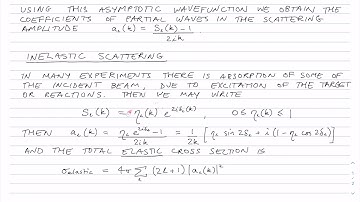 USING THIS ASYMPTOTIC WAVEFUNCTION WE OBTAIN THE
COEFFICIENTS OF PARTIAL WAVES IN THE SCATTERING
AMPLITUDE a_ℓ(k) = (S_ℓ(k) - 1) / 2ik .
INELASTIC SCATTERING
IN MANY EXPERIMENTS THERE IS ABSORPTION OF SOME OF
THE INCIDENT BEAM, DUE TO EXCITATION OF THE TARGET
OR REACTIONS. THEN WE MAY WRITE
S_ℓ(k) = η_ℓ(k) e^{2iδ_ℓ(k)} , 0 ≤ η_ℓ(k) ≤ 1
THEN a_ℓ(k) = (η_ℓ e^{2iδ_ℓ} - 1) / 2ik = 1/2k [ η_ℓ sin 2δ_ℓ + i (1 - η_ℓ cos 2δ_ℓ) ]
AND THE TOTAL ELASTIC CROSS SECTION IS
σ_elastic = 4π Σ_ℓ (2ℓ+1) |a_ℓ(k)|²